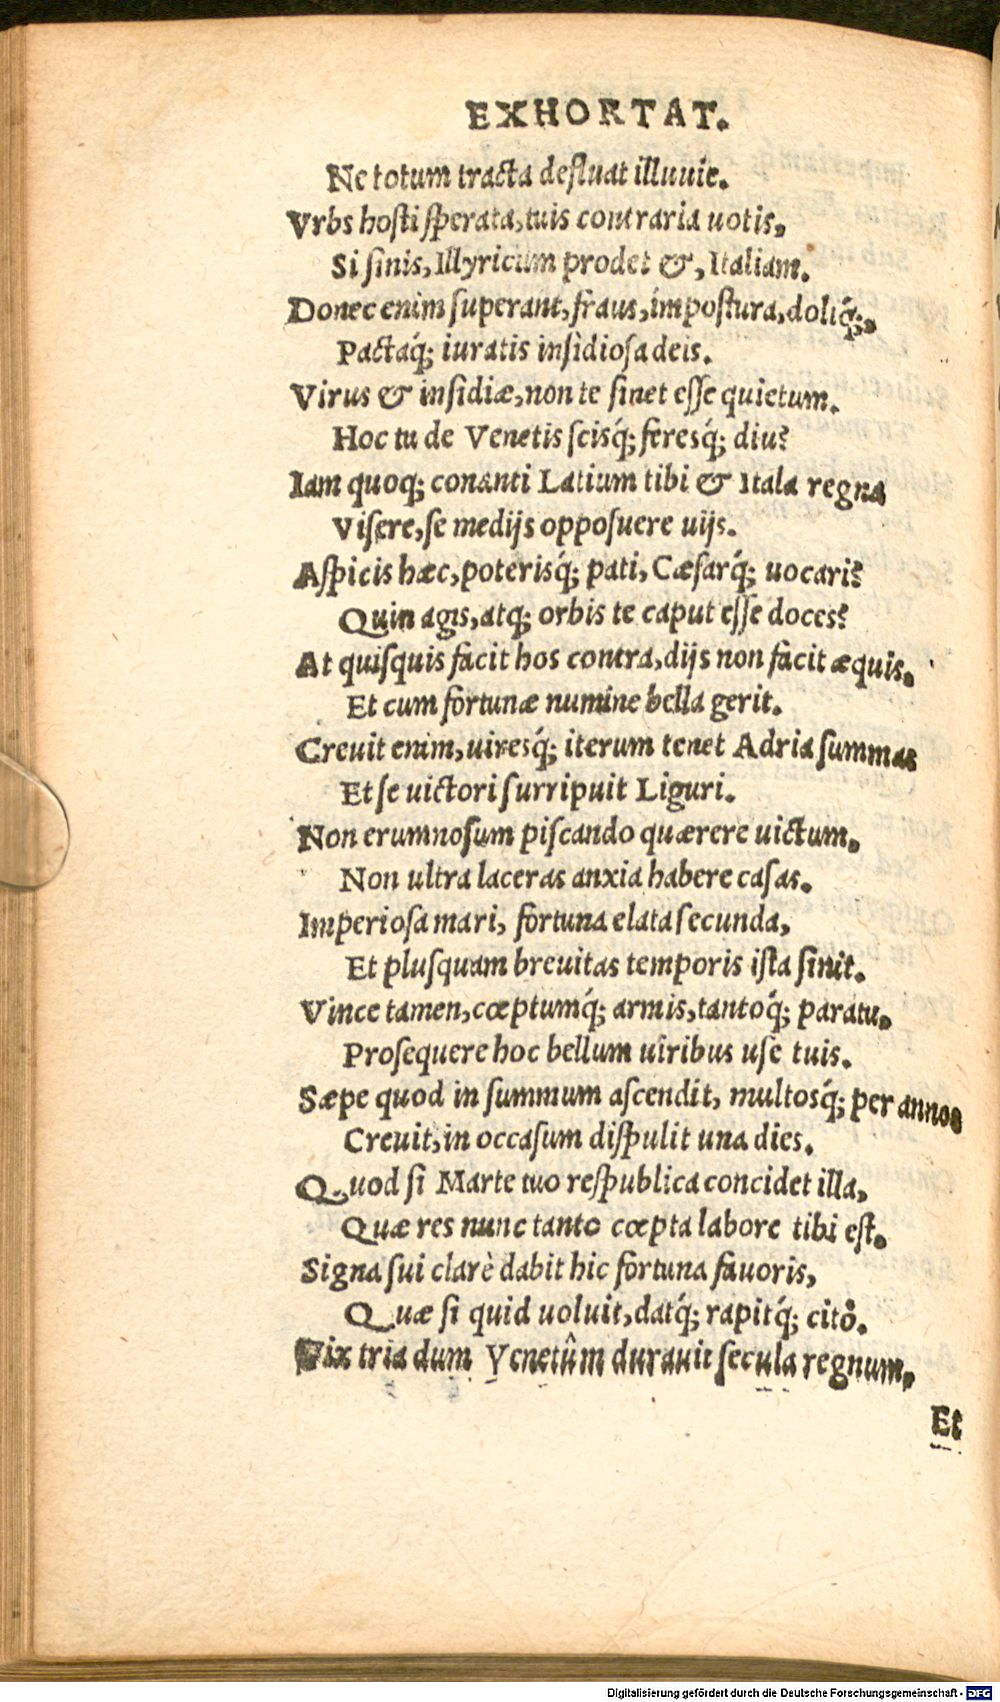 EXHORTAT.
Ne totum tracta defluat illuuie.
Vrbs hosti sperata, tuis contraria uotis,
Si sinis, Illyricum prodet &, Italiam.
Donec enim superant, fraus, impostura, doliq́;,
Pactaq́; iuratis insidiosa deis.
Virus & insidiæ, non te sinet esse quietum.
Hoc tu de Venetis scisq́; feresq́; diu?
Iam quoq; conanti Latium tibi & Itala regna
Visere, se medijs opposuere uijs.
Aspicis hæc, poterisq́; pati, Cæsarq́; uocari?
Quin agis, atq; orbis te caput esse doces?
At quisquis facit hos contra, dijs non facit æquis.
Et cum fortunæ numine bella gerit.
Creuit enim, uiresq́; iterum tenet Adria summas
Et se uictori surripuit Liguri.
Non erumnosum piscando quærere uictum,
Non ultra laceras anxia habere casas.
Imperiosa mari, fortuna elata secunda,
Et plusquam breuitas temporis ista sinit.
Vince tamen, cœptumq́; armis, tantoq́; paratu,
Prosequere hoc bellum uiribus use tuis.
Sæpe quod in summum ascendit, multosq́; per annos
Creuit, in occasum dispulit una dies.
Quod si Marte tuo respublica concidet illa,
Quæ res nunc tanto cœpta labore tibi est.
Signa sui clarè dabit hic fortuna fauoris,
Quæ si quid uoluit, datq́; rapitq́; citò.
Vix tria dum Venetûm durauit secula regnum,
Et
Digitalisierung gefördert durch die Deutsche Forschungsgemeinschaft - DFG